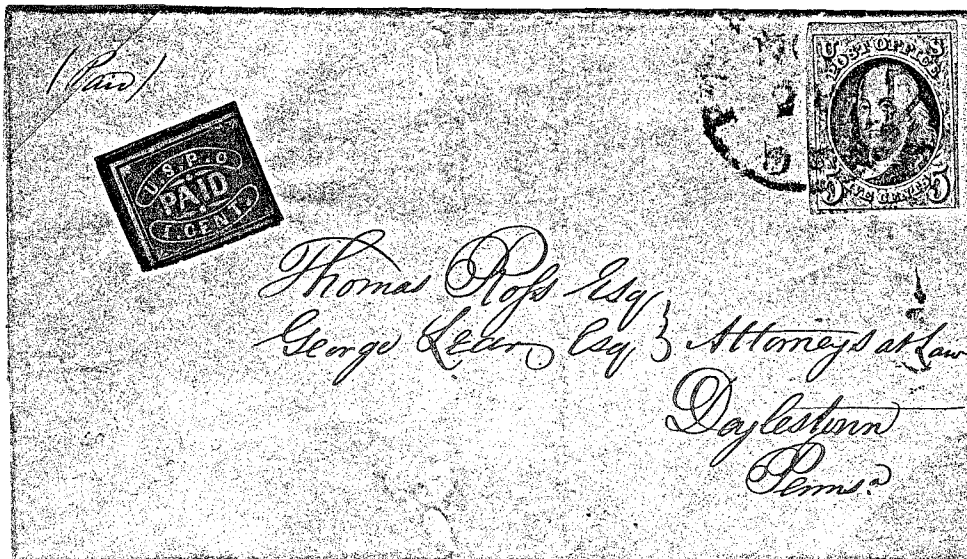 (Paid)
U.S.P.O
PAID
1. CENT.
U S
POST OFFICE
5 FIVE CENTS 5
5
Thomas Ross Esq
George Lear Esq } Attorneys at Law
Doylestown
Penns.a